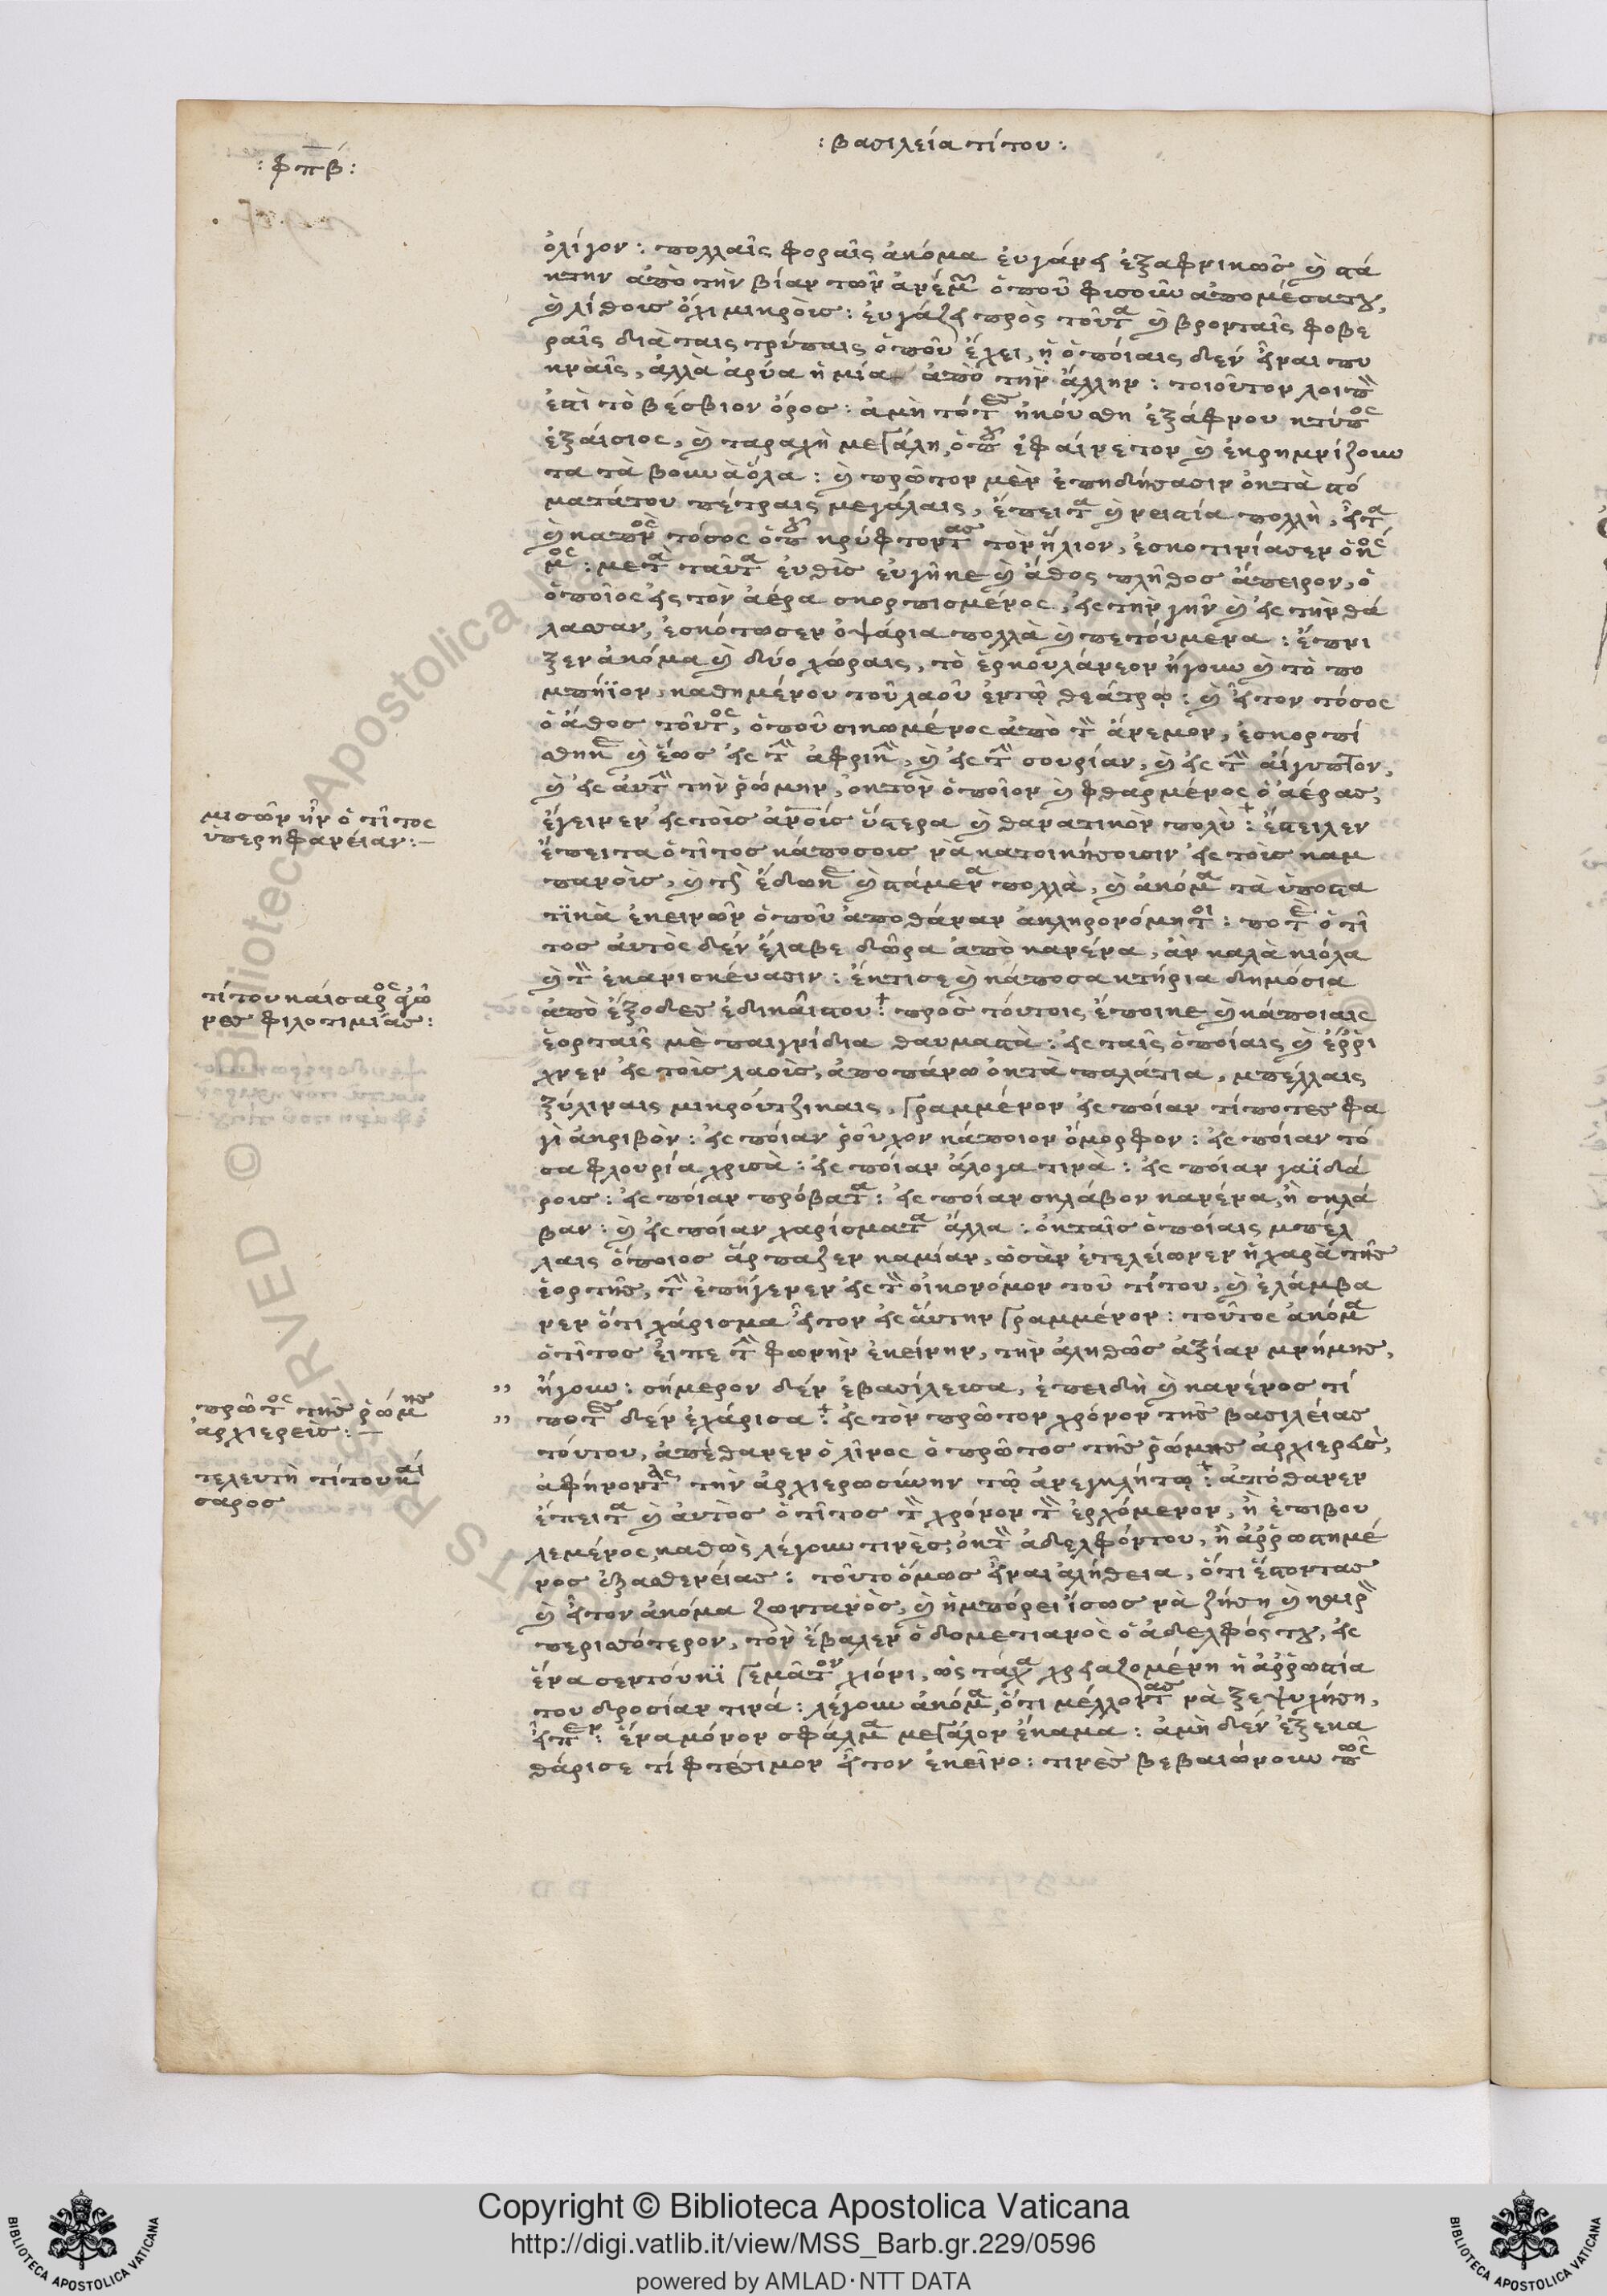 : βασιλεία τίτου :
: φπβ :
ὀλίγον : πολλαῖς φοραῖς ἀκόμα ἐυγάνει ἐξαφνικῶς καὶ στά
κτην ἀπὸ τὴν βίαν τῶν ἀνέμων ὁποῦ φισοῦν ἀπομέσατου,
καὶ λίθοις ὄχι μικρόις : ἐυγάζει πρὸς τοῦτα καὶ βρονταῖς φοβε
ραῖς διὰ ταις τρύπαις ὁποῦ ἔχει, ἡ ὁποίαις δὲν εἶναι πυ
κναῖς, ἀλλὰ ἀρύα ἡ μία ἀπὸ τὴν ἄλλην : τοιοῦτον λοιπὸν
ἐστὶ τὸ βέσβιον ὄρος : ἀμὴ τότες ἠκούσθη ἐξάφνου κτύπος
ἐξάισιος, καὶ ταραχὴ μεγάλη, ὁποῦ ἐφαίνετον καὶ ἐκρημνίζουν
τα τὰ βουνὰ ὅλα : καὶ πρῶτον μὲν ἐπηδήσασιν ὀκτὰ στό
ματάτου πέτραις μεγάλαις, ἔπειτα καὶ νεισία πολλὴ, εἶτα
καὶ καπνὸς τόσος ὁποῦ κρύφτοντας τὸν ἥλιον, ἐσκοτινίασεν ὁ κόσ
μος : μετὰ ταῦτα ἐυθὶς ἐυγῆκε καὶ ἄθος πλῆθος ἄπειρον, ὁ
ὁποῖος εἰς τὸν ἀέρα σκορπισμένος, εἰς τὴν γῆν καὶ εἰς τὴν θά
λασσαν, ἐσκότωσεν ὀψάρια πολλὰ καὶ πετούμενα : ἔπνι
ξεν ἀκόμα καὶ δύο χώραις, τὸ ἐρκουλάνεον ἤγουν καὶ τὸ πο
μπήϊον, καθημένου τοῦ λαοῦ ἐν τῷ θεάτρῳ : καὶ εἶτον τόσος
ὁ ἄθος τοῦτος, ὁποῦ σικωμένος ἀπὸ τὸν ἄνεμον, ἐσκορπί
σθηκε καὶ ἕως εἰς τὴν ἀφρικὴν, καὶ εἰς τὴν σουρίαν, καὶ εἰς τὴν αἴγυπτον,
καὶ εἰς ἀυτὴν τὴν ῥώμην, ὀκτὸν ὁποῖον καὶ φθαρμένος ὁ ἀέρας,
ἔγεινεν εἰς τοὶς ἀνοὶς ὕστερα καὶ θανατικὸν πολὺ : ἔστειλεν
ἔπειτα ὁ τῖτος κάποσοις νὰ κατοικήσοισιν εἰς τοὶς καμ
πανοὶς, καὶ τοὶς ἔδωκε καὶ στάμενα πολλὰ, καὶ ἀκόμα τὰ ὑποστα
τικὰ ἐκεινῶν ὁποῦ ἀποθάναν ἀκληρονόμητοι : ποτὲ ὁ τῖ
τος ἀυτὸς δὲν ἔλαβε δῶρα ἀπὸ κανένα, ἂν καλὰ κιόλα
καὶ τὸν ἐκανισκέυασιν : ἔκτισε καὶ κάποσα κτήρια δημόσια
ἀπὸ ἔξοδες ἐδικαῖστου : πρὸς τούτοις ἔποικε καὶ κάποιαις
ἑορταῖς μὲ παιγνίδια θαυμαστὰ : εἰς ταῖς ὁποίαις καὶ ἔῤῥι
χνεν εἰς τοὶς λαοὶς, ἀποπάνω ὀκτὰ παλάτια, μπέλλαις
ξύλιναις μικρούτζικαις, γραμμένον εἰς ποίαν τίποτες φα
γὶ ἀκριβὸν : εἰς ποίαν ῥοῦχον κάποιον ὄμορφον : εἰς ποίαν τό
σα φλουρία χρισὰ : εἰς ποίαν ἄλογα τινὰ : εἰς ποίαν γαϊδά
ροις : εἰς ποίαν πρόβατα : εἰς ποίαν σκλάβον κανένα, ἢ σκλά
βαν : καὶ εἰς ποίαν χαρίσματα ἄλλα : ὀκταῖς ὁποίαις μπέλ
λαις ὅποιος ἅρπαζεν καμίαν, ὡσὰν ἐτελείωνεν ἡ χαρὰ τῆς
ἑορτῆς, τὴν ἐπήγενεν εἰς τὸν οἰκονόμον τοῦ τίτου, καὶ ἐλάμβα
νεν ὅτι χάρισμα εἶτον εἰς ἄυτην γραμμένον : τοῦτος ἀκόμα
ὁ τῖτος εἶπε τὴν φωνὴν ἐκείνην, τὴν ἀληθῶς ἀξίαν μνήμης,
„ ἤγουν : σήμερον δὲν ἐβασίλεισα, ἐπειδὴ καὶ κανένος τί
„ ποτες δὲν ἐχάρισα : εἰς τὸν πρῶτον χρόνον τῆς βασιλείας
τούτου, ἀπέθανεν ὁ λῖνος ὁ πρῶτος τῆς ῥώμης ἀρχιερεὺς,
ἀφήνοντας τὴν ἀρχιερωσύνην τῷ ἀνεγκλήτῳ : ἀπόθανεν
ἔπειτα καὶ ἀυτὸς ὁ τῖτος τὸν χρόνον τὸν ἐρχόμενον, ἢ ἐπιβου
λεμένος, καθὼς λέγουν τινὲς, ὀκτὸν ἀδελφόντου, ἢ ἀῤῥωστημέ
νος ἐξ ἀσθενείας : τοῦτο ὅμως εἶναι ἀλήθεια, ὅτι ἔστοντας
καὶ εἶτον ἀκόμα ζωντανὸς, καὶ ἠμπόρει ἴσως νὰ ζήση καὶ καιρὸν
περισσότερον, τὸν ἔβαλεν ὁ δομετιανὸς ὁ ἀδελφός του, εἰς
ἕνα σεντούκϊ γεμᾶτον χιόνι, ὡς τάχα χρειαζομένη ἡ ἀῤῥωστία
του δροσίαν τινά : λέγουν ἀκόμα, ὅτι μέλλοντας νὰ ξεψυχήση,
εἶπεν : ἕνα μόνον σφάλμα μεγάλον ἔκαμα : ἀμὴ δὲν ἐξεκα
θάρισε τί φτέσιμον εἶτον ἐκεῖνο : τινὲς βεβαιώνουν πῶς
μισῶν ἦν ὁ τῖτος
ὑπερηφανείαν : —
τίτου καίσαρος
φιλοτιμίας :
πρῶτος τῆς ῥώμης
ἀρχιερεὶς : —
τελευτὴ τίτου καί
σαρος
Copyright © Biblioteca Apostolica Vaticana
http://digi.vatlib.it/view/MSS_Barb.gr.229/0596
powered by AMLAD · NTT DATA
BIBLIOTECA APOSTOLICA VATICANA
BIBLIOTECA APOSTOLICA VATICANA